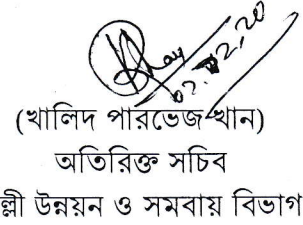 ০২.০২.২০
(খালিদ পারভেজ খান)
অতিরিক্ত সচিব
ল্লী উন্নয়ন ও সমবায় বিভাগ